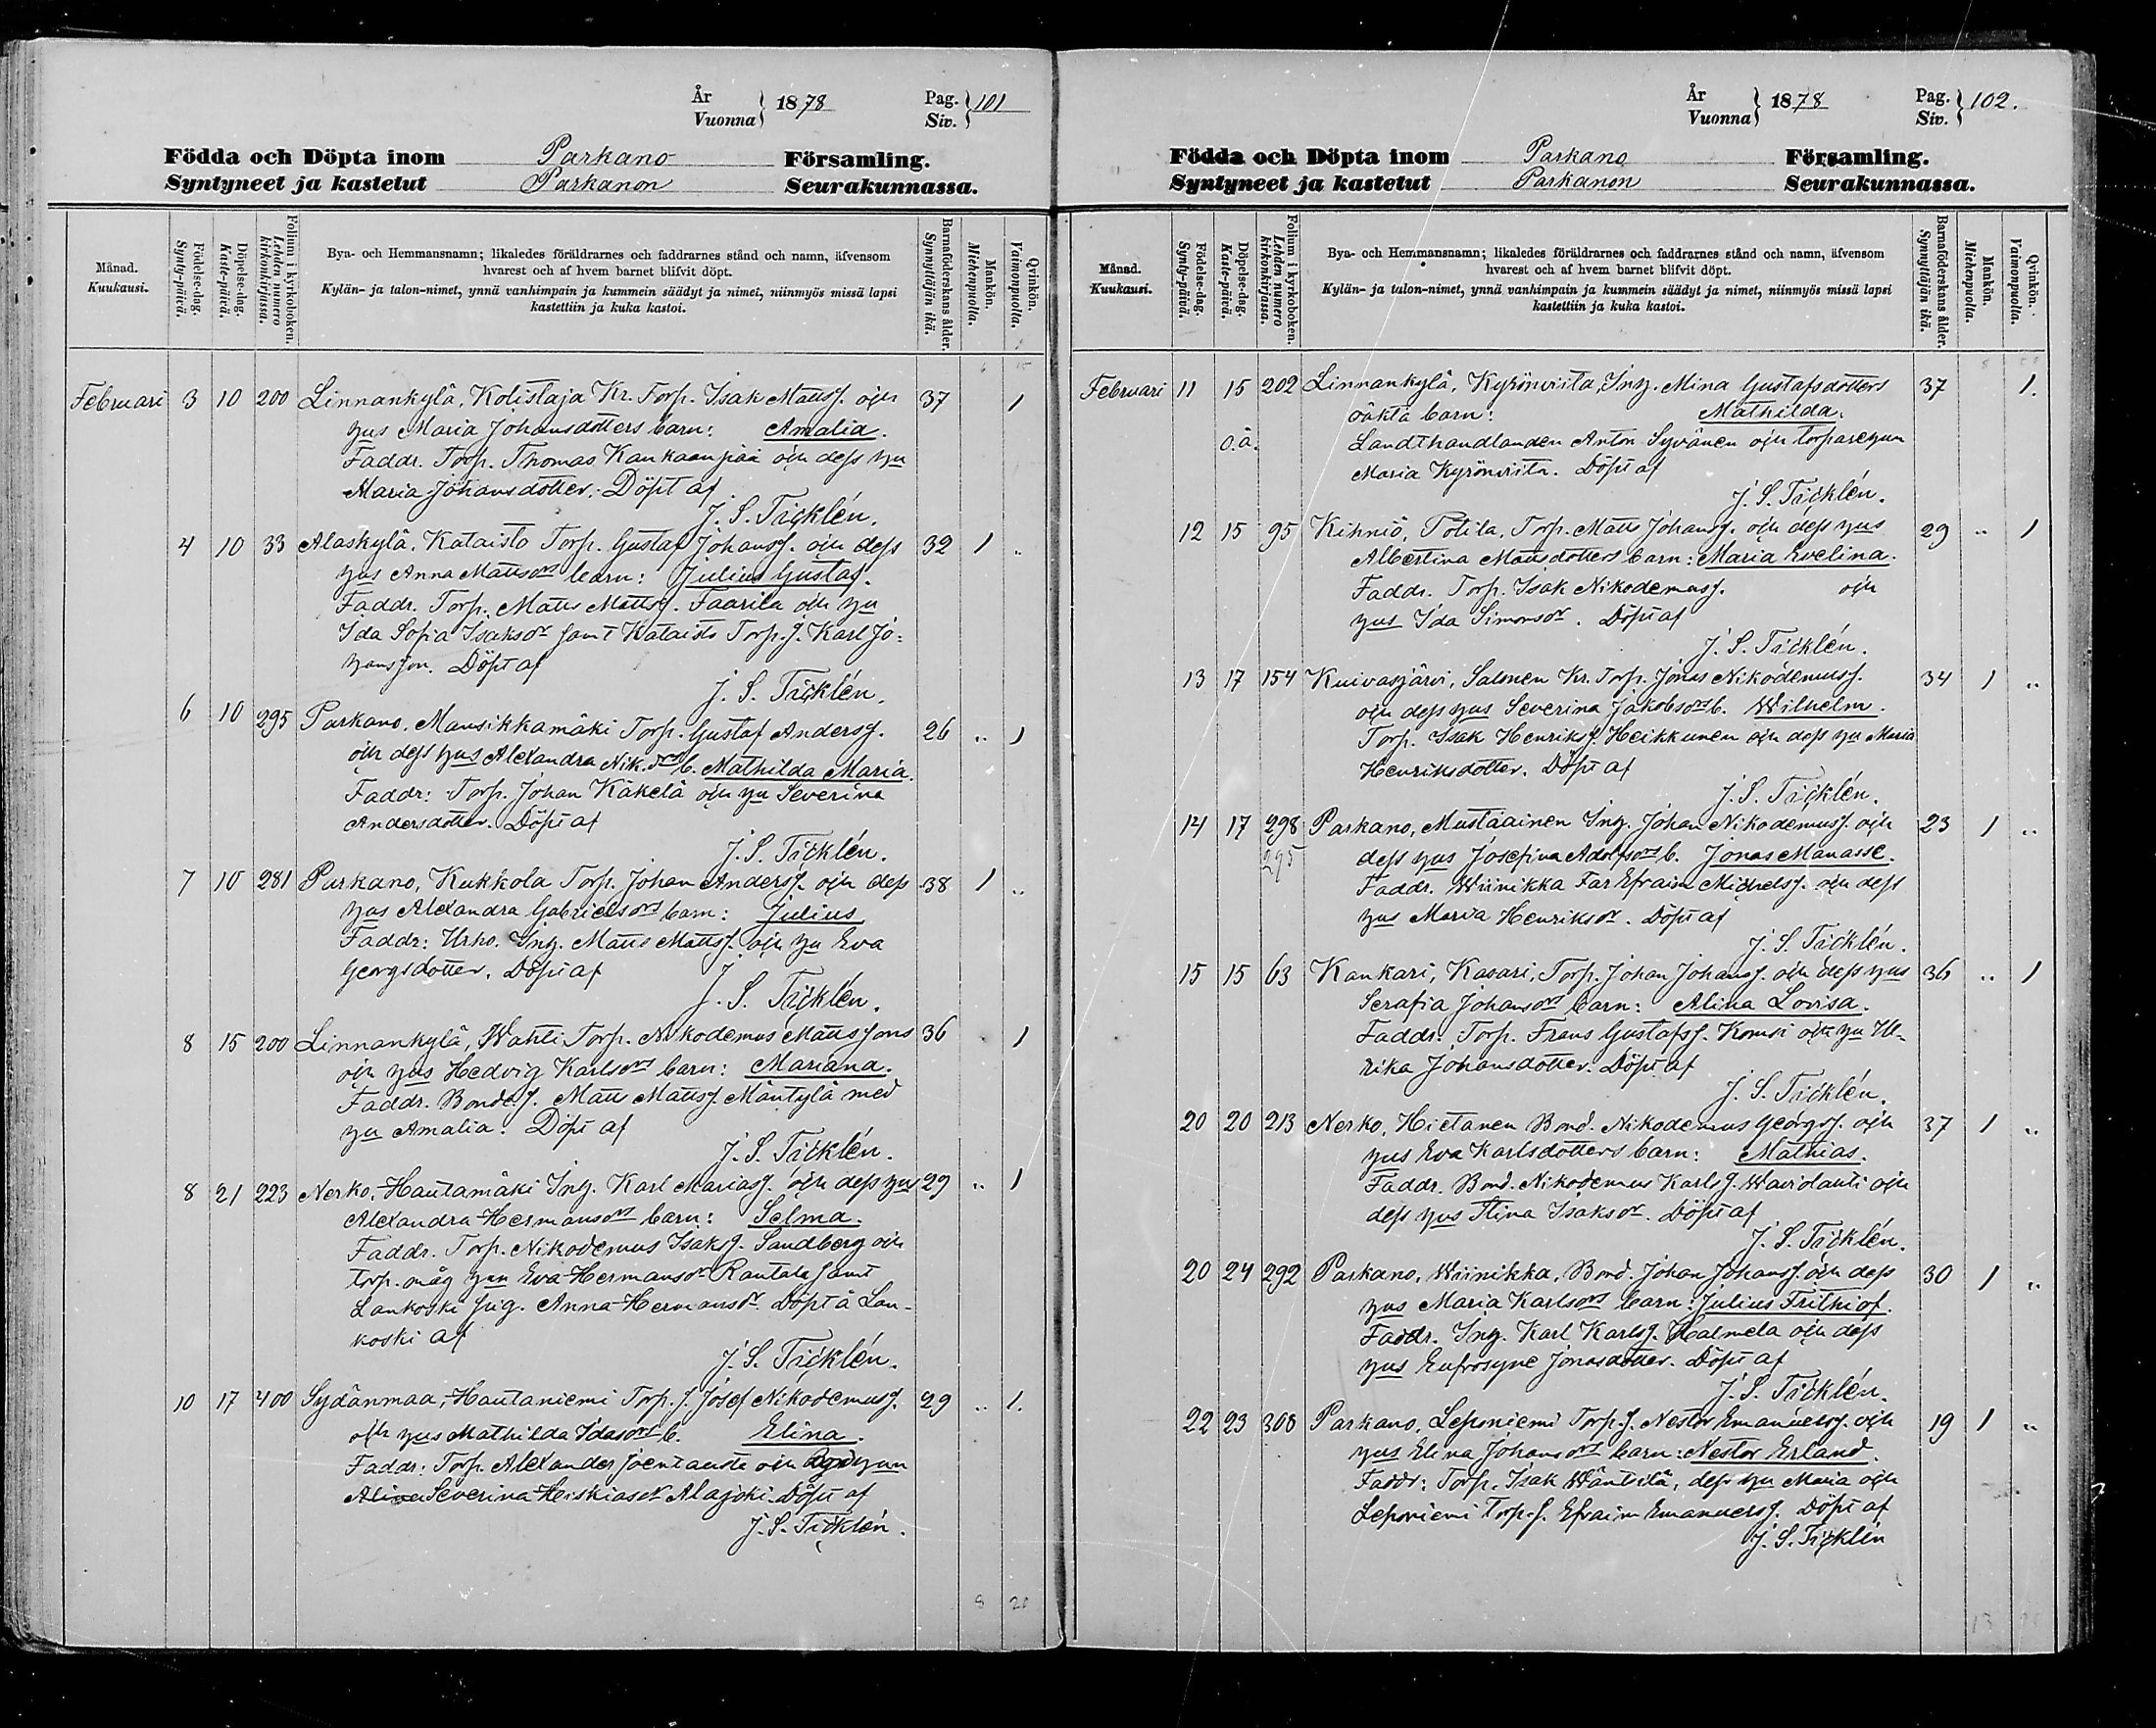 År
Vuonna
1878
Pag.
Siv.
101
Födda och Döpta inom Parkano Församling.
Syntyneet ja kastetut Parkanon Seurakunnassa.
Månad.
Kuukausi.
Födelse-dag.
Synty-päivä.
Döpelse-dag.
Kaste-päivä.
Folium i kyrkoboken.
Lehden numero
kirkonkirjassa.
Bya- och Hemmansnamn; likaledes föräldrarnes och faddrarnes stånd och namn, äfvensom
hvarest och af hvem barnet blifvit döpt.
Kylän- ja talon-nimet, ynnä vanhimpain ja kummein säädyt ja nimet, niinmyös missä lapsi
kastettiin ja kuka kastoi.
Barnaföderskans ålder.
Synnyttäjän ikä.
Mankön.
Miehenpuolia.
Qvinkön.
Vaimonpuolia.
Februari 3 10 200 Linnankylä, Kolistaja Kr. Torp. Isak Mattsf. och 37 1
hus Maria Johansdotters barn: Amalia.
Faddr. Torp. Thomas Kankaanpää och dess hu
Maria Johansdotter. Döpt af
J. S. Ticklén.
4 10 33 Alaskylä, Kataisto Torp. Gustaf Johansf. och dess 32 1 ..
hus Anna Mattsdrs barn: Julius Gustaf.
Faddr. Torp. Matts Mattsf. Faarila och hu
Ida Sofia Isaksdr samt Kataisto Torp. f. Karl Jo-
hansson. Döpt af
J. S. Ticklén.
6 10 295 Parkano, Mansikkamäki Torp. Gustaf Andersf. 26 .. 1
och dess hus Alexandra Nik.drs b. Mathilda Maria.
Faddr: Torp. Johan Käkelä och hu Severina
Andersdotter. Döpt af
J. S. Ticklén.
7 10 281 Parkano, Kukkola Torp. Johan Andersf. och dess 38 1 ..
hus Alexandra Gabrielsdrs barn: Julius
Faddr: Urho. Inh. Matts Mattsf. och hu Eva
Georgsdotter. Döpt af
J. S. Ticklén.
8 15 200 Linnankylä, Wahti Torp. Nikodemus Mattssons 36 1
och hus Hedvig Karlsdrs barn: Mariana.
Faddr. Bondes. Matts Mattsf. Mäntylä med
hu Amalia. Döpt af
J. S. Ticklén.
8 21 223 Nerko, Hautamäki Inh. Karl Mariasf. och dess hus 29 .. 1
Alexandra Hermansdrs barn: Selma.
Faddr. Torp. Nikodemus Isaksf. Sandberg och
torp. måg hun Eva Hermansdr Rantala samt
Lankoski Pig. Anna Hermansdr. Döpt å Lan-
koski af
J. S. Ticklén.
10 17 400 Sydänmaa, Hautaniemi Torp. f. Josef Nikodemusf. 29 .. 1.
och hus Mathilda Idasdrs b. Elina.
Faddr: Torp. Alexander Joentausta och hun
Severina Heskiasdr Alajoki. Döpt af
J. S. Ticklén.
8 20
År
Vuonna
1878
Pag.
Siv.
102.
Födda och Döpta inom Parkano Församling.
Syntyneet ja kastetut Parkanon Seurakunnassa.
Månad.
Kuukausi.
Födelse-dag.
Synty-päivä.
Döpelse-dag.
Kaste-päivä.
Folium i kyrkoboken.
Lehden numero
kirkonkirjassa.
Bya- och Hemmansnamn; likaledes föräldrarnes och faddrarnes stånd och namn, äfvensom
hvarest och af hvem barnet blifvit döpt.
Kylän- ja talon-nimet, ynnä vanhimpain ja kummein säädyt ja nimet, niinmyös missä lapsi
kastettiin ja kuka kastoi.
Barnaföderskans ålder.
Synnyttäjän ikä.
Mankön.
Miehenpuolia.
Qvinkön.
Vaimonpuolia.
Februari 11 15 202 Linnankylä, Kyrönviita, Inh. Mina Gustafsdotters 37 1.
oäkta barn: Mathilda.
o.ä. Landthandlanden Anton Syvänen och torparehun
Maria Kyrönviita. Döpt af
J. S. Ticklén.
12 15 95 Kihniö, Potila, Torp. Matts Johansf. och dess hus 29 .. 1
Albertina Mattsdotters barn: Maria Evelina.
Faddr. Torp. Isak Nikodemusf. och
hus Ida Simonsdr. Döpt af
J. S. Ticklén.
13 17 154 Kuivasjärvi, Salmen Kr. Torp. Jonas Nikodemusf. 34 1 ..
och dess hus Severina Jakobsdrs b. Wilhelm.
Torp. Isak Henriksf. Heikkunen och dess hu Maria
Henriksdotter. Döpt af
J. S. Ticklén.
14 17 298 Parkano, Mustaainen Inh. Johan Nikodemusf. och 23 1 ..
295 dess hus Josefina Adolfsdrs b. Jonas Manasse.
Faddr. Wiinikka Far Efraim Michelsf. och dess
hus Maria Henriksdr. Döpt af
J. S. Ticklén.
15 15 63 Kankari, Kavari, Torp. Johan Johansf. och dess hus 36 .. 1
Serafia Johansdrs barn: Alina Lovisa.
Faddr: Torp. Frans Gustafsf. Komsi och hu Ul-
rika Johansdotter. Döpt af
J. S. Ticklén.
20 20 213 Nerko, Hietanen Bond. Nikodemus Georgsf. och 37 1 ..
hus Eva Karlsdotters barn: Mathias.
Faddr. Bond. Nikodemus Karlsf. och
dess hus Stina Isaksdr. Döpt af
J. S. Ticklén.
20 24 292 Parkano, Wiinikka, Bond. Johan Johansf. och dess 30 1 ..
hus Maria Karlsdrs barn: Julius Frithiof.
Faddr. Inh. Karl Karlsf. Halmela och dess
hus Eufrosyne Jonasdotter. Döpt af
J. S. Ticklén.
22 23 308 Parkano, Leponiemi Torp. f. Nestor Emanuelsf. och 19 1 ..
hus Elina Johansdrs barn: Nestor Erland.
Faddr: Torp. Isak Wäntsilä, dess hu Maria och
Leponiemi Torp. f. Efraim Emanuelsf. Döpt af
J. S. Ticklén
13